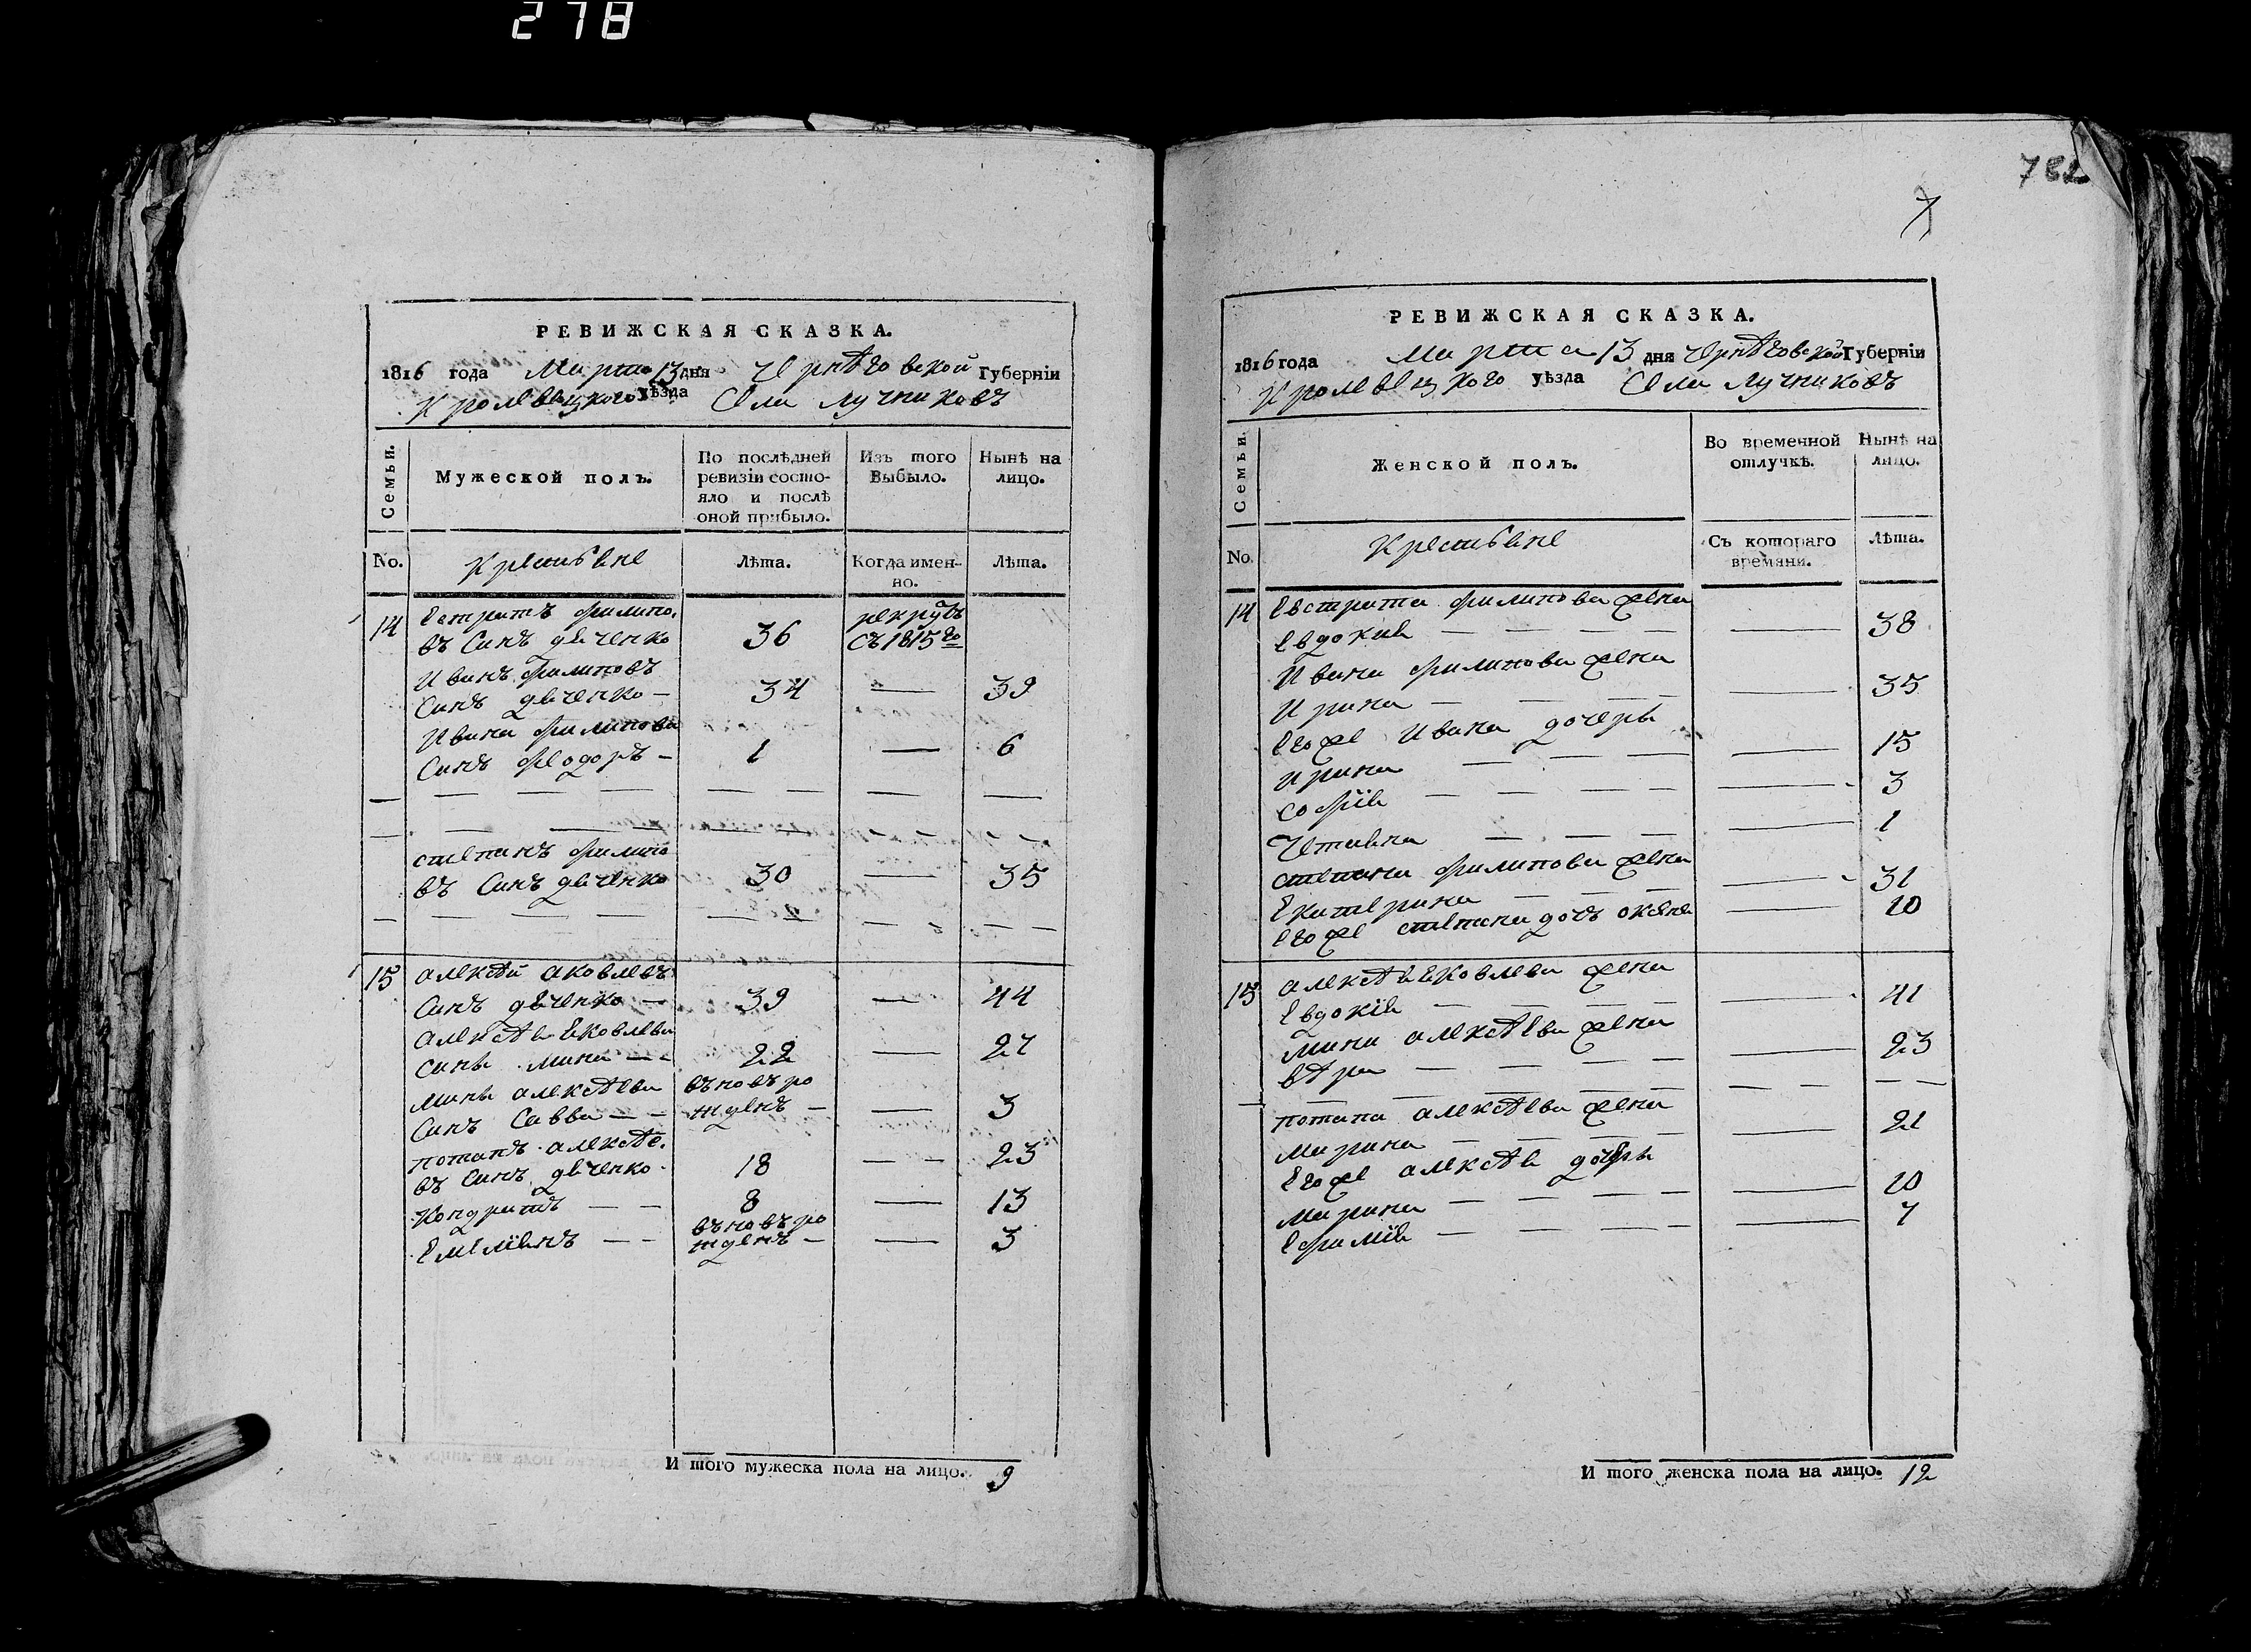 278
РЕВИЖСКАЯ СКАЗКА.
1816 года Марта 13 дня Чернѣговской Губернiи
Кролевецкого уѣзда Села Лучниковъ
Семьи.
Мужеской полъ.
По послѣдней ревизiи состо-
яло и послѣ
оной прибыло.
Изъ того
Выбыло.
Нынѣ на
лицо.
No.
Крестьяне
Лѣта.
Когда имен-
но.
Лѣта.
14 Естратъ филипо.
въ Синъ дяченко 36 рекрутъ съ 1815 го
Иванъ филиповъ
Синъ дяченко — 34 — 39
Ивана филипова
Синъ феодоръ — 1 — 6
степанъ филипо
въ Синъ дяченко 30 — 35
15 алексѣй аковлевъ
Синъ дяченко — 39 — 44
алексѣя Яковлева
синъ мина — 22 — 27
мины алексѣева въновъ ро
Синъ Савва — — жденъ — — 3
потапъ алексѣе.
въ Синъ дяченко 18 — — 23
Кондратъ — — 8 — 13
Емелiянъ — — въновъ ро
жденъ — — 3
И того мужеска пола на лицо. 9
782
7
РЕВИЖСКАЯ СКАЗКА.
1816 года Марта 13 дня Чернѣговской Губернiи
Кролевецкого уѣзда Села Лучниковъ
Семьи.
Женской полъ.
Во временной
отлучкѣ.
Нынѣ на
лицо.
No.
Крестьяне
Съ котораго
времяни.
Лѣта.
14 Евстрата филипова жена
Евдокия — — — — — 38
Ивана филипова жена
Ирина — — — — 35
Егоже Ивана дочеры
Ирина — — — — 15
софiя — — — — — 3
Четвяна — — — — 1
степана филипова жена
Екатерина — — — — 31
Егоже степана дочь оксеня — 10
15 алексѣя Яковлева жена
Евдокiя — — — — — 41
мины алексѣева жена
вѣра — — — — — 23
потапа алексѣева жена
Марина — — — — — 21
Егоже алексѣя дочеры
Марина — — — — — 10
Ефимiя — — — — — 7
И того женска пола на лицо. 12